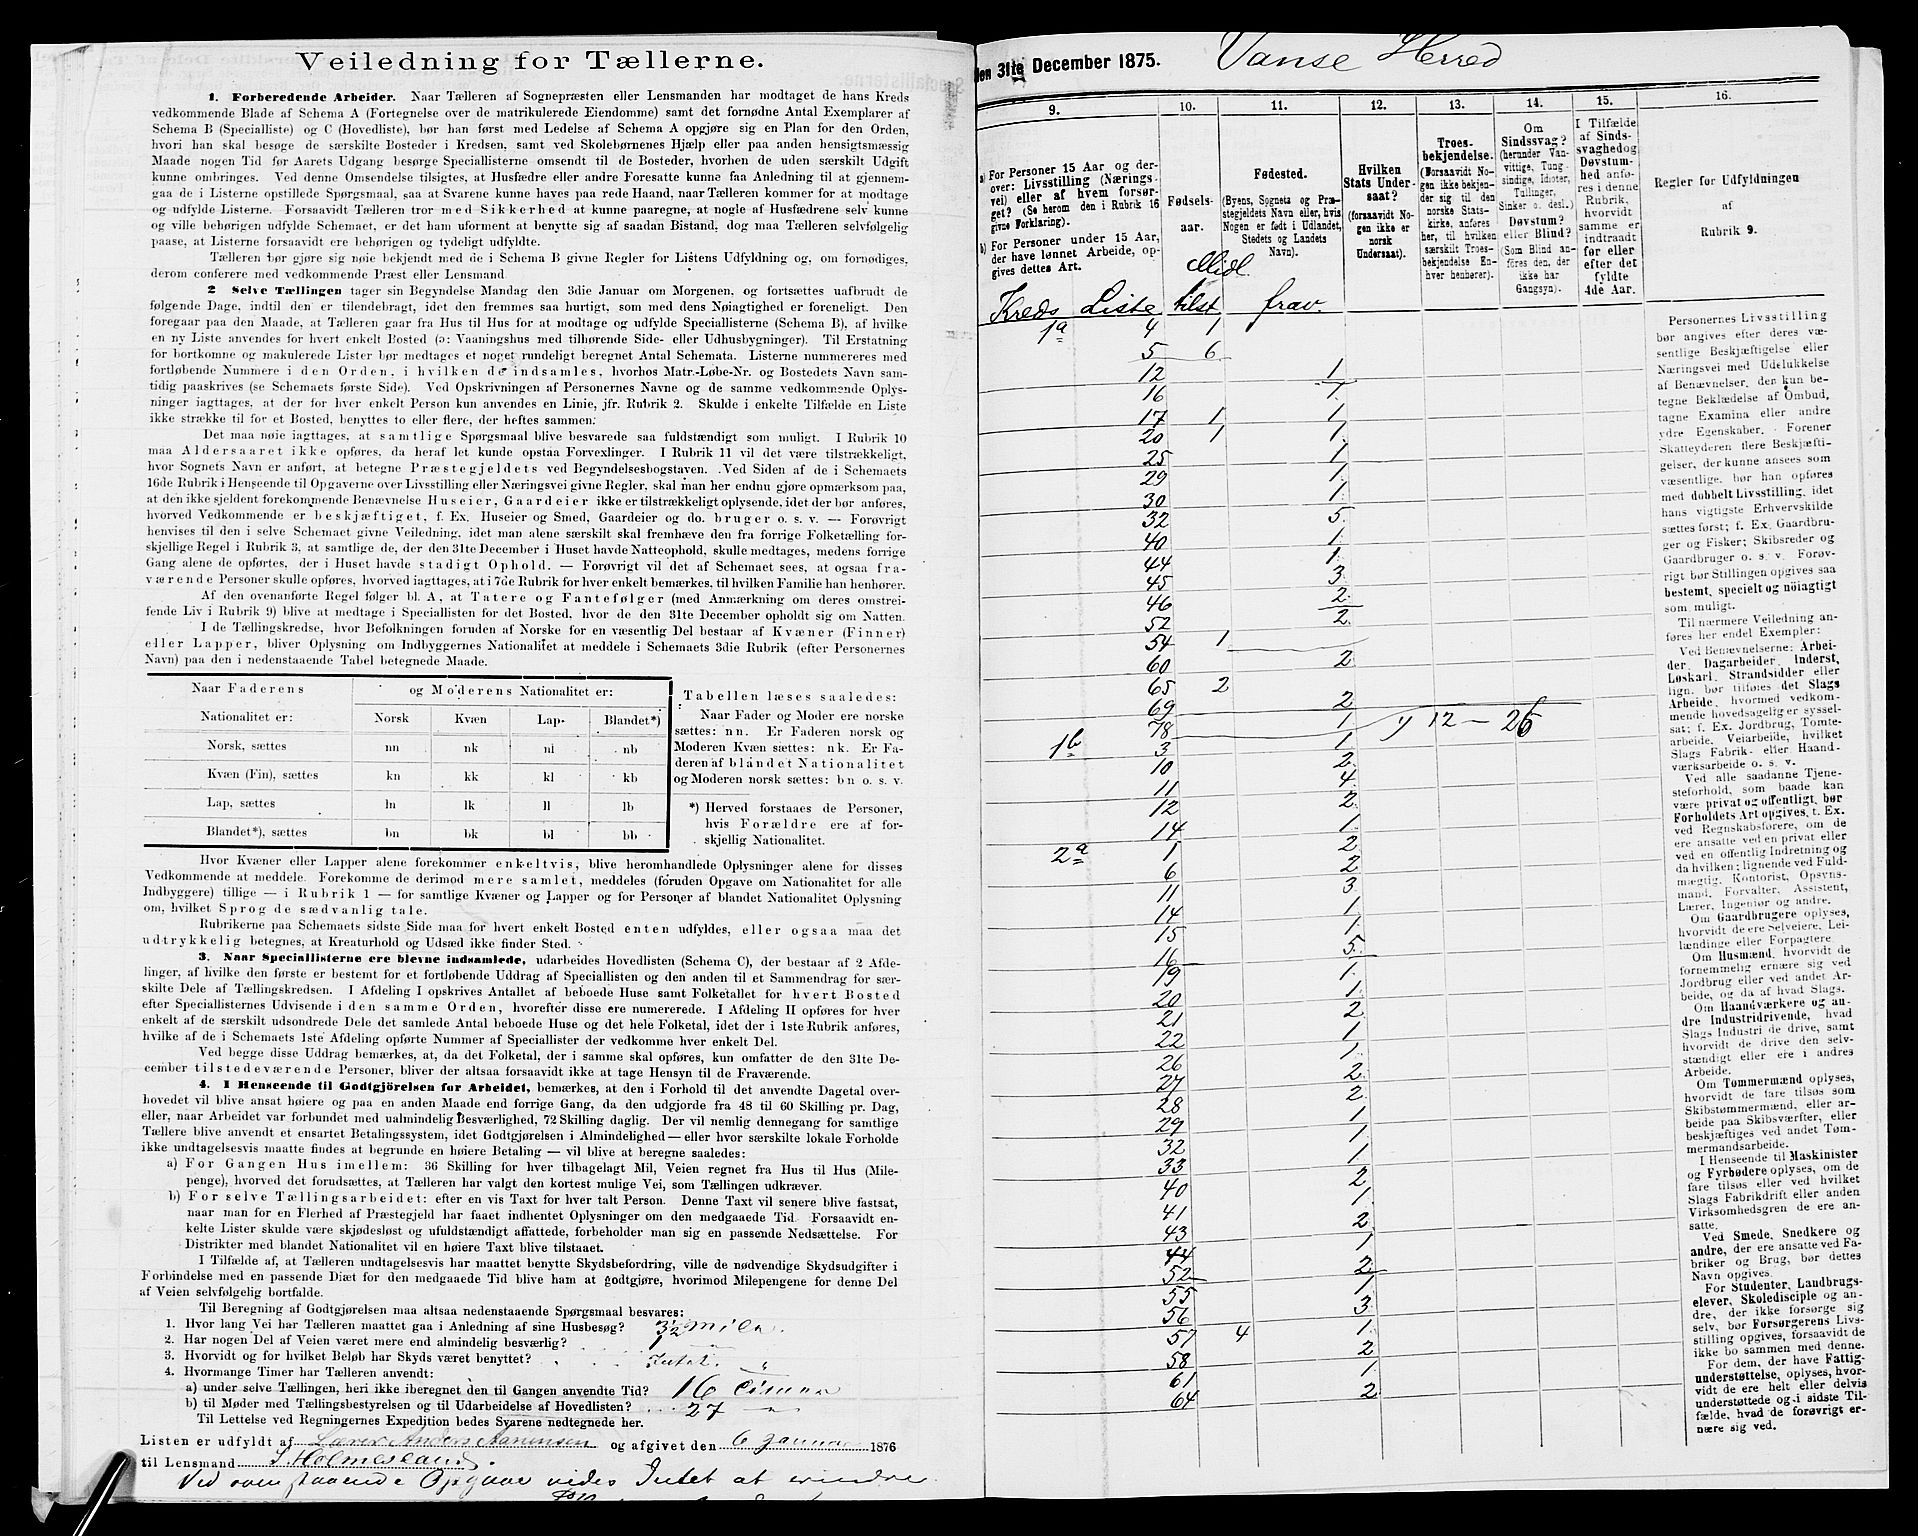 Veiledning for Tællerne.
1. Forberedende Arbeider. Naar Tælleren af Sognepræsten eller Lensmanden har modtaget de hans Kreds
vedkommende Blade af Schema A (Fortegnelse over de matrikulerede Eiendomme) samt det fornødne Antal Exemplarer af
Schema B (Specialliste) og C (Hovedliste), bør han først med Ledelse af Schema A opgjøre sig en Plan for den Orden,
hvori han skal besøge de særskilte Bosteder i Kredsen, samt ved Skolebørnenes Hjælp eller paa anden hensigtsmæssig
Maade nogen Tid før Aarets Udgang besørge Speciallisterne omsendt til de Bosteder, hvorhen de uden særskilt Udgift
kunne ombringes. Ved denne Omsendelse tilsigtes, at Husfædre eller andre Foresatte kunne faa Anledning til at gjennem-
gaa de i Listerne opstillede Spørgsmaal, saa at Svarene kunne haves paa rede Haand, naar Tælleren kommer for at modtage
og udfylde Listerne. Forsaavidt Tælleren tror med Sikkerhed at kunne paaregne, at nogle af Husfædrene selv kunne
og ville behørigen udfylde Schemaet, er det ham uforment at benytte sig af saadan Bistand, dog maa Tælleren selvfølgelig
paase, at Listerne forsaavidt ere behørigen og tydeligt udfyldte.
Tælleren bør gjøre sig nøie bekjendt med de i Schema B givne Regler for Listens Udfyldning og, om fornødiges,
derom conferere med vedkommende Præst eller Lensmand.
2 Selve Tællingen tager sin Begyndelse Mandag den 3die Januar om Morgenen, og fortsættes uafbrudt de
følgende Dage, indtil den er tilendebragt, idet den fremmes saa hurtigt, som med dens Nøiagtighed er foreneligt. Den
foregaar paa den Maade, at Tælleren gaar fra Hus til Hus for at modtage og udfylde Speciallisterne (Schema B), af hvilke
en ny Liste anvendes for hvert enkelt Bosted (ɔ: Vaaningshus med tilhørende Side- eller Udhusbygninger). Til Erstatning
for bortkomne og makulerede Lister bør medtages et noget rundeligt beregnet Antal Schemata. Listerne nummereres med
fortløbende Nummere i den Orden, i hvilken de indsamles, hvorhos Matr.-Løbe-Nr. og Bostedets Navn sam-
tidig paaskrives (se Schemaets første Side). Ved Opskrivningen af Personernes Navne og de samme vedkommende Oplys-
ninger iagttages, at der for hver enkelt Person kun anvendes en Linie, jfr. Rubrik 2. Skulde i enkelte Tilfælde en Liste
ikke strække til for et Bosted, benyttes to eller flere, der heftes sammen.
Det maa nøie iagttages, at samtlige Spørgsmaal blive besvarede saa fuldstændigt som muligt. I Rubrik 10
maa Aldersaaret ikke opføres, da heraf let kunde opstaa Forvexlinger. I Rubrik 11 vil det være tilstrækkeligt,
hvor Sognets Navn er anført, at betegne Præstegjeldets ved Begyndelsesbogstaven. Ved Siden af de i Schemaets
16de Rubrik i Henseende til Opgaverne over Livsstilling eller Næringsvei givne Regler, skal man her endnu gjøre opmærksom paa,
at den ikke sjeldent forekommende Benævnelse Huseier, Gaardeier ikke er tilstrækkeligt oplysende, idet der bør anføres,
hvorved Vedkommende er beskjæftiget, f. Ex. Huseier og Smed, Gaardeier og do. bruger o. s. v. — Forøvrigt
henvises til den i selve Schemaet givne Veiledning, idet man alene særskilt skal fremhæve den fra forrige Folketælling for-
skjellige Regel i Rubrik 3, at samtlige de, der den 31te December i Huset havde Natteophold, skulle medtages, medens forrige
Gang alene de opførtes, der i Huset havde stadigt Ophold. — Forøvrigt vil det af Schemaet sees, at ogsaa fra-
værende Personer skulle opføres, hvorved iagttages, at i 7de Rubrik for hver enkelt bemærkes, til hvilken Familie han henhører.
Af den ovenanførte Regel følger bl. A, at Tatere og Fantefølger (med Anmærkning om deres omstrei-
fende Liv i Rubrik 9) blive at medtage i Speciallisten for det Bosted, hvor de den 31te December opholdt sig om Natten.
I de Tællingskredse, hvor Befolkningen foruden af Norske for en væsentlig Del bestaar af Kvæner (Finner)
eller Lapper, bliver Oplysning om Indbyggernes Nationalitet at meddele i Schemaets 3die Rubrik (efter Personernes
Navn) paa den i nedenstaaende Tabel betegnede Maade.
Naar Faderens
Nationalitet er:
og Moderens Nationalitet er:
Norsk Kvæn Lap. Blandet*)
Norsk, sættes nn nk nl nb
Kvæn (Fin), sættes kn kk kl kb
Lap, sættes ln lk ll lb
Blandet*), sættes bn bk bl bb
Tabellen læses saaledes:
Naar Fader og Moder ere norske
sættes: nn. Er Faderen norsk og
Moderen Kvæn sættes: nk. Er Fa-
deren af blandet Nationalitet
og Moderen norsk sættes: bn o. s. v.
*) Herved forstaaes de Personer,
hvis Forældre ere af for-
skjellig Nationalitet.
Hvor Kvæner eller Lapper alene forekommer enkeltvis, blive heromhandlede Oplysninger alene for disses
Vedkommende at meddele. Forekomme de derimod mere samlet, meddeles (foruden Opgave om Nationalitet for alle
Indbyggere) tillige — i Rubrik 1 — for samtlige Kvæner og Lapper og for Personer af blandet Nationalitet Oplysning
om, hvilket Sprog de sædvanlig tale.
Rubrikerne paa Schemaets sidste Side maa for hvert enkelt Bosted enten udfyldes, eller ogsaa maa det
udtrykkelig betegnes, at Kreaturhold og Udsæd ikke finder Sted.
3. Naar Speciallisterne ere blevne indsamlede, udarbeides Hovedlisten (Schema C), der bestaar af 2 Afde-
linger, af hvilke den første er bestemt for et fortløbende Uddrag af Speciallisten og den anden til et Sammendrag for sær-
skilte Dele af Tællingskredsen. I Afdeling I opskrives Antallet af beboede Huse samt Folketallet for hvert Bosted
efter Speciallisternes Udvisende i den samme Orden, hvorefter disse ere nummererede. I Afdeling II opføres for hver
enkelt af de særskilt udsondrede Dele det samlede Antal beboede Huse og det hele Folketal, idet der i 1ste Rubrik anføres,
hvilke af de i Schemaets 1ste Afdeling opførte Nummer af Speciallister der vedkomme hver enkelt Del.
Ved begge disse Uddrag bemærkes, at, da det Folketal, der i samme skal opføres, kun omfatter de den 31te De-
cember tilstedeværende Personer, bliver der altsaa forsaavidt ikke at tage Hensyn til de Fraværende.
4. I Henseende til Godtgjörelsen for Arbeidet, bemærkes, at den i Forhold til det anvendte Dagetal over-
hovedet vil blive ansat høiere og paa en anden Maade end forrige Gang, da den udgjorde fra 48 til 60 Skilling pr. Dag,
eller, naar Arbeidet var forbundet med ualmindelig Besværlighed, 72 Skilling daglig. Der vil nemlig dennegang for samtlige
Tællere blive anvendt et ensartet Betalingssystem, idet Godtgjörelsen i Almindelighed — eller hvor særskilte lokale Forholde
ikke undtagelsesvis maatte findes at begrunde en høiere Betaling — vil blive at beregne saaledes:
a) For Gangen Hus imellem: 36 Skilling for hver tilbagelagt Mil, Veien regnet fra Hus til Hus (Mile-
penge), hvorved det forudsættes, at Tælleren har valgt den kortest mulige Vei, som Tællingen udkræver.
b) For selve Tællingsarbeidet: efter en vis Taxt for hver talt Person. Denne Taxt vil senere blive fastsat,
naar man for en Flerhed af Præstegjeld har faaet indhentet Oplysninger om den medgaaede Tid. Forsaavidt en-
kelte Lister skulde være skjødesløst og ufuldstændigt affattede, forbeholder man sig en passende Nedsættelse. For
Distrikter med blandet Nationalitet vil en høiere Taxt blive tilstaaet.
I Tilfælde af, at Tælleren undtagelsesvis har maattet benytte Skydsbefordring, ville de nødvendige Skydsudgifter i
Forbindelse med en passende Diæt for den medgaaede Tid blive ham at godtgjøre, hvorimod Milepengene for denne Del
af Veien selvfølgelig bortfalde.
Til Beregning af Godtgjørelsen maa altsaa nedenstaaende Spørgsmaal besvares:
1. Hvor lang Vei har Tælleren maattet gaa i Anledning af sine Husbesøg? 3½ Mile.
2. Har nogen Del af Veien været mere end almindelig besværlig?
3. Hvorvidt og for hvilket Beløb har Skyds været benyttet? Intet.
4. Hvormange Timer har Tælleren anvendt:
a) under selve Tællingen, heri ikke iberegnet den til Gangen anvendte Tid? 16 Timer
b) til Møder med Tællingsbestyrelsen og til Udarbeidelse af Hovedlisten? 27 "
Til Lettelse ved Regningernes Expedition bedes Svarene nedtegnede her.
Listen er udfyldt af Lærer Anders Aanensen og afgivet den 6 Januar 1876
til Lensmand S. Holmesland.
Ved ovenstaaende Opgave vides Intet at erindre
den 31te December 1875. Vanse Herred
9. 10. 11. 12. 13. 14. 15. 16.
a) For Personer 15 Aar og der-
over: Livsstilling (Nærings-
vei) eller af hvem forsør-
get? (Se herom den i Rubrik 16
givne Forklaring).
b) For Personer under 15 Aar,
der have lønnet Arbeide, op-
gives dettes Art.
Fødsels-
aar.
Fødested.
(Byens, Sognets og Præ-
stegjeldets Navn eller, hvis
Nogen er født i Udlandet,
Stedets og Landets
Navn).
Hvilken
Stats Under-
saat?
(forsaavidt No-
gen ikke er
norsk
Undersaat).
Troes-
bekjendelse.
(Forsaavidt No-
gen ikke bekjen-
der sig til den
norske Stats-
kirke, anføres
her, til hvilken
særskilt Troes-
bekjendelse En-
hver henhører).
Om
Sindssvag?
(herunder Van-
vittige, Tung-
sindige, Idioter,
Tullinger,
Sinker o. desl.)
Døvstum?
eller Blind?
(Som Blind an-
føres den, der
ikke har
Gangsyn).
I Tilfælde
af Sinds-
svaghed og
Døvstum-
hed anfø-
res i denne
Rubrik,
hvorvidt
samme er
indtraadt
før eller
efter det
fyldte
4de Aar.
Regler for Udfyldningen
af
Rubrik 9.
Midl.
Kreds Liste tilst frav.
1a 4 1
5 6
12 1
16 1
17 1 1
20 1 1
25 1
29 1
30 1
32 5
40 1
44 1
45 3
46 2
52 2
54 1
60 2
65 2
69 2
78 1 12 — 26
1b 3 1
10 2
11 4
12 2
14 1
2a 1 2
6 2
11 3
14 1
15 1
16 5
19 1
20 1
21 2
22 1
26 1
27 2
28 2
29 1
32 1
33 1
40 2
41 1
43 2
44 1
52 2
55 1
56 3
57 4 1
58 2
61 1
64 2
Personernes Livsstilling
bør angives efter deres væ-
sentlige Beskjæftigelse eller
Næringsvei med Udelukkelse
af Benævnelser, der kun be-
tegne Beklædelse af Ombud,
tagne Examina eller andre
ydre Egenskaber. Forener
Skatteyderen flere Beskjæfti-
gelser, der kunne ansees som
væsentlige, bør han opføres
med dobbelt Livsstilling, idet
hans vigtigste Erhvervskilde
sættes først; f. Ex. Gaardbru-
ger og Fisker; Skibsreder og
Gaardbruger o. s. v. Forøv-
rigt bør Stillingen opgives saa
bestemt, specielt og nöiagtigt
som muligt.
Til nærmere Veiledning an-
føres her endel Exempler:
Ved Benævnelserne: Arbei-
der, Dagarbeider, Inderst,
Løskarl, Strandsidder eller
lign. bør tilføies det Slags
Arbeide, hvormed vedkom-
mende hovedsagelig er syssel-
sat; f. Ex. Jordbrug, Tomte-
arbeide, Veiarbeide, hvilket
Slags Fabrik- eller Haand-
værksarbeide o. s. v.
Ved alle saadanne Tjene-
steforhold, som baade kan
være privat og offentligt, bør
Forholdets Art opgives, f. Ex.
ved Regnskabsførere, om de
ere ansatte ved en privat eller
ved en offentlig Indretning og
da hvilken; lignende ved Fuld-
mægtig, Kontorist, Opsyns-
mand, Forvalter, Assistent,
Lærer, Ingeniør og andre.
Om Gaardbrugere oplyses,
hvorvidt de ere Selveiere, Lei-
lændinge eller Forpagtere.
Om Husmænd, hvorvidt de
fornemmelig ernære sig ved
Jordbrug eller ved andet Ar-
beide, og da af hvad Slags.
Om Haandværkere og an-
dre Industridrivende, hvad
Slags Industri de drive, samt
hvorvidt de drive den selv-
stændigt eller ere i andres
Arbeide.
Om Tømmermænd oplyses,
hvorvidt de fare tilsøs som
Skibstømmermænd, eller ar-
beide paa Skibsværfter, eller
beskjæftiges ved andet Tøm-
mermandsarbeide.
I Henseende til Maskinister
og Fyrbødere oplyses, om de
fare tilsøs eller ved hvilket
Slags Fabrikdrift eller anden
Virksomhedsgren de ere an-
satte.
Ved Smede, Snedkere og
andre, der ere ansatte ved Fa-
briker og Brug, bør dettes
Navn opgives.
For Studenter, Landbrugs-
elever, Skoledisciple og an-
dre, der ikke forsørge sig
selv, bør Forsørgerens Livs-
stilling opgives, forsaavidt de
ikke bo sammen med denne.
For dem, der have Fattig-
understøttelse, oplyses, hvor-
vidt de ere helt eller delvis
understøttede og i sidste Til-
fælde, hvad de forøvrigt er-
nære sig ved.